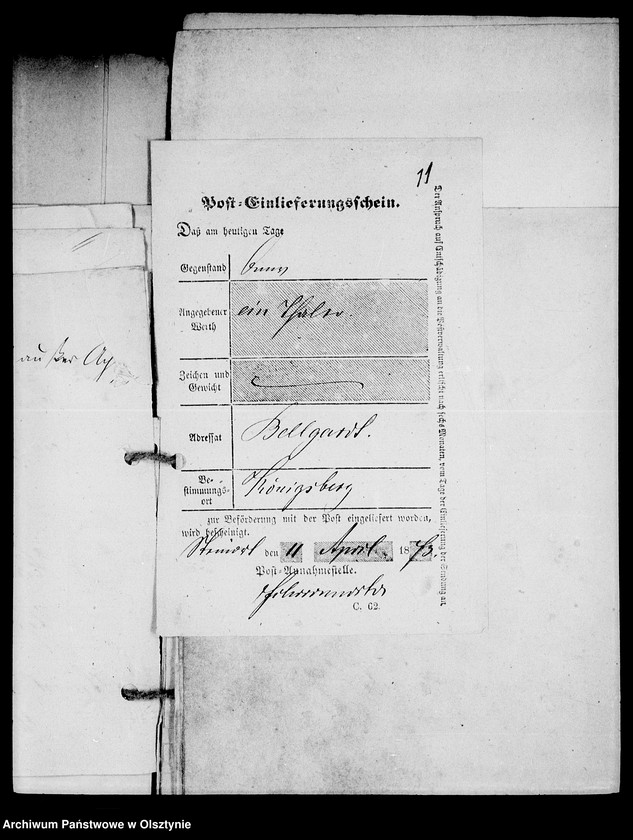 11
Post-Einlieferungsschein.
Daß am heutigen Tage
Gegenstand
Angegebener Werth ein Thaler.
Zeichen und Gewicht
Adressat Bellgardt.
Be-
stimmungs-
ort Königsberg
zur Beförderung mit der Post eingeliefert worden,
wird bescheinigt.
den 11 April 1873.
Post-Annahmestelle.
C. 62.
Der Anspruch auf Entschädigung an die Postverwaltung erlischt nach sechs Monaten, vom Tage der Einlieferung der Sendung an.
außer
Archiwum Państwowe w Olsztynie